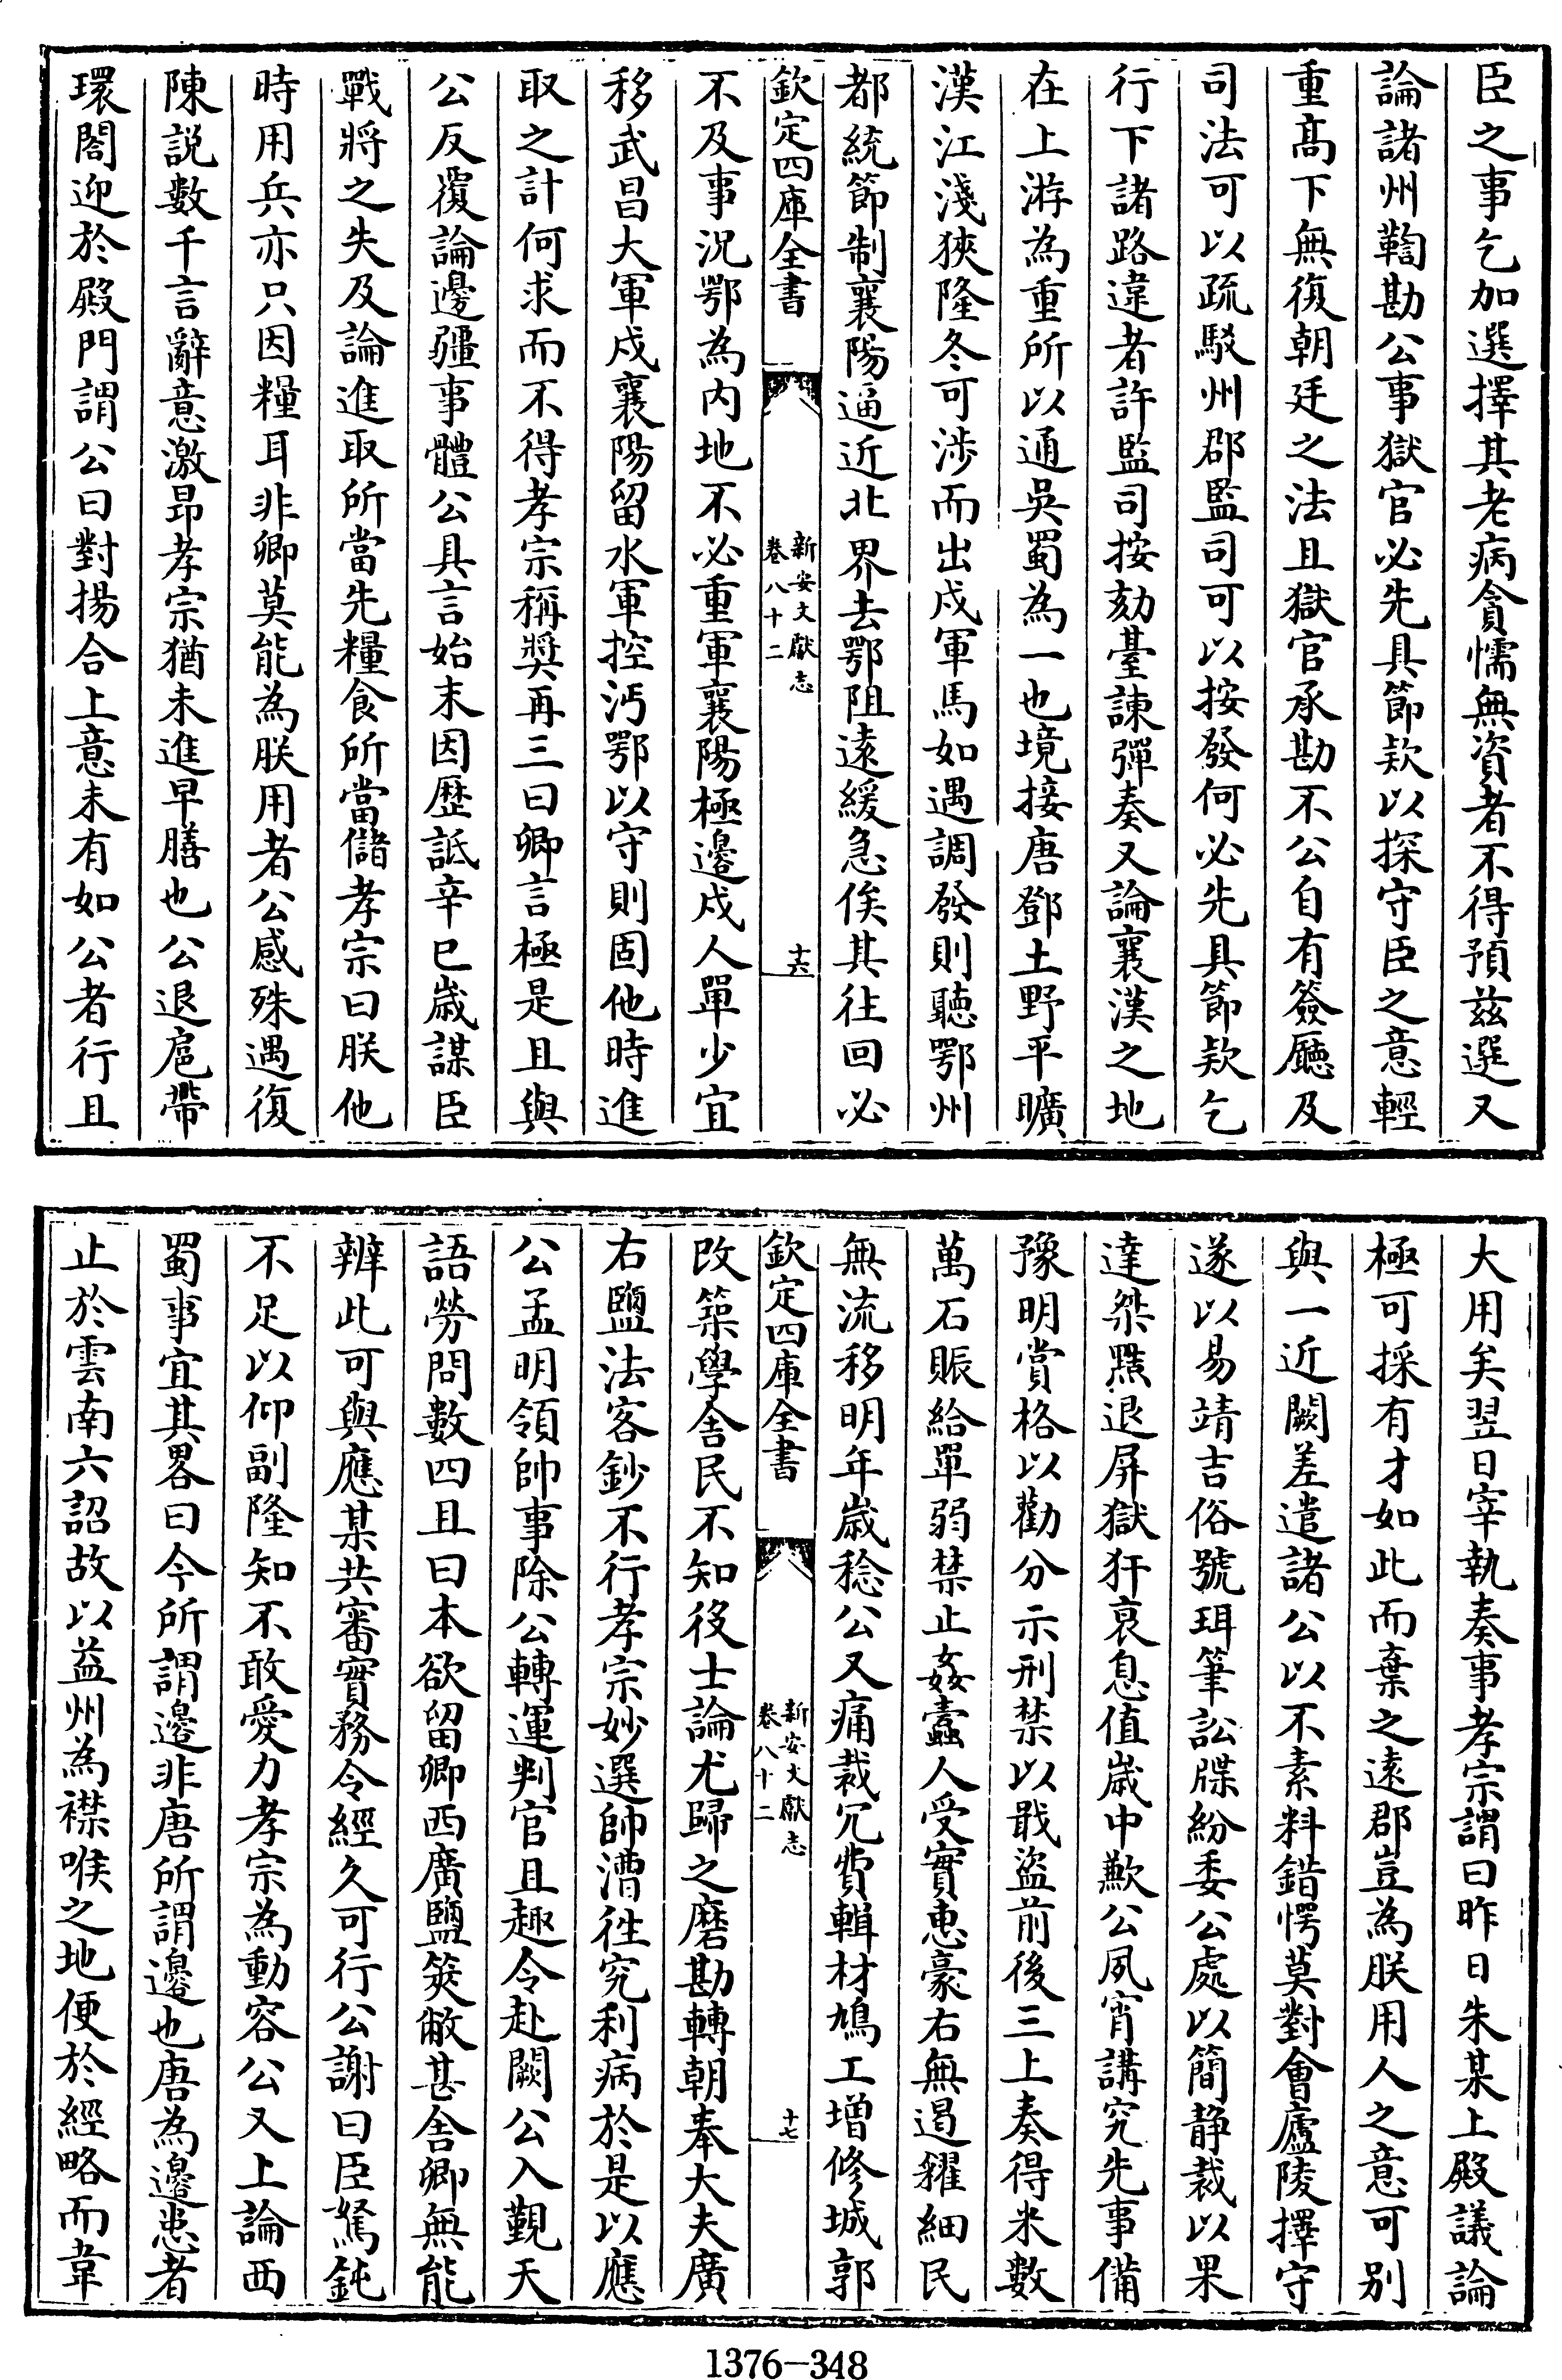 臣之事乞加選擇其老病貪懦無資者不得預兹選又
論諸州鞫勘公事獄官必先具節欵以探守臣之意輕
重髙下無復朝廷之法且獄官承勘不公自有簽廳及
司法可以疏駁州郡監司可以按發何必先具節欵乞
行下諸路違者許監司按劾臺諫彈奏又論襄漢之地
在上游為重所以通吳蜀為一也境接唐鄧土野平曠
漢江淺狹隆冬可涉而出戍軍馬如遇調發則聽鄂州
都統節制襄陽逼近北界去鄂阻遠緩急俟其往回必
欽定四庫全書
新安文獻志
卷八十二
十六
不及事況鄂為内地不必重軍襄陽極邊戍人單少宜
移武昌大軍戍襄陽留水軍控沔鄂以守則固他時進
取之計何求而不得孝宗稱奬再三曰卿言極是且與
公反覆論邊疆事體公具言始末因歴詆辛巳嵗謀臣
戰將之失及論進取所當先糧食所當儲孝宗曰朕他
時用兵亦只因糧耳非卿莫能為朕用者公感殊遇復
陳説數千言辭意激昂孝宗猶未進早膳也公退扈帶
環閤迎於殿門謂公曰對揚合上意未有如公者行且
大用矣翌日宰執奏事孝宗謂曰昨日朱某上殿議論
極可採有才如此而棄之遠郡豈為朕用人之意可别
與一近闕差遣諸公以不素料錯愕莫對會廬陵擇守
遂以易靖吉俗號珥筆訟牒紛委公處以簡静裁以果
達桀黠退屏獄犴哀息值嵗中歉公夙宵講究先事備
豫明賞格以勸分示刑禁以戢盜前後三上奏得米數
萬石賑給單弱禁止姦蠹人受實惠豪右無遏糴細民
無流移明年嵗稔公又痛裁冗費輯材鳩工增修城郭
欽定四庫全書
新安文獻志
卷八十二
十七
改築學舍民不知役士論尤歸之磨勘轉朝奉大夫廣
右鹽法客鈔不行孝宗妙選帥漕往究利病於是以應
公孟明領帥事除公轉運判官且趣令赴闕公入覲天
語勞問數四且曰本欲留卿西廣鹽筴敝甚舍卿無能
辨此可與應某共審實務令經久可行公謝曰臣駑鈍
不足以仰副隆知不敢愛力孝宗為動容公又上論西
蜀事宜其畧曰今所謂邊非唐所謂邊也唐為邊患者
止於雲南六詔故以益州為襟喉之地便於經略而韋
1376-348